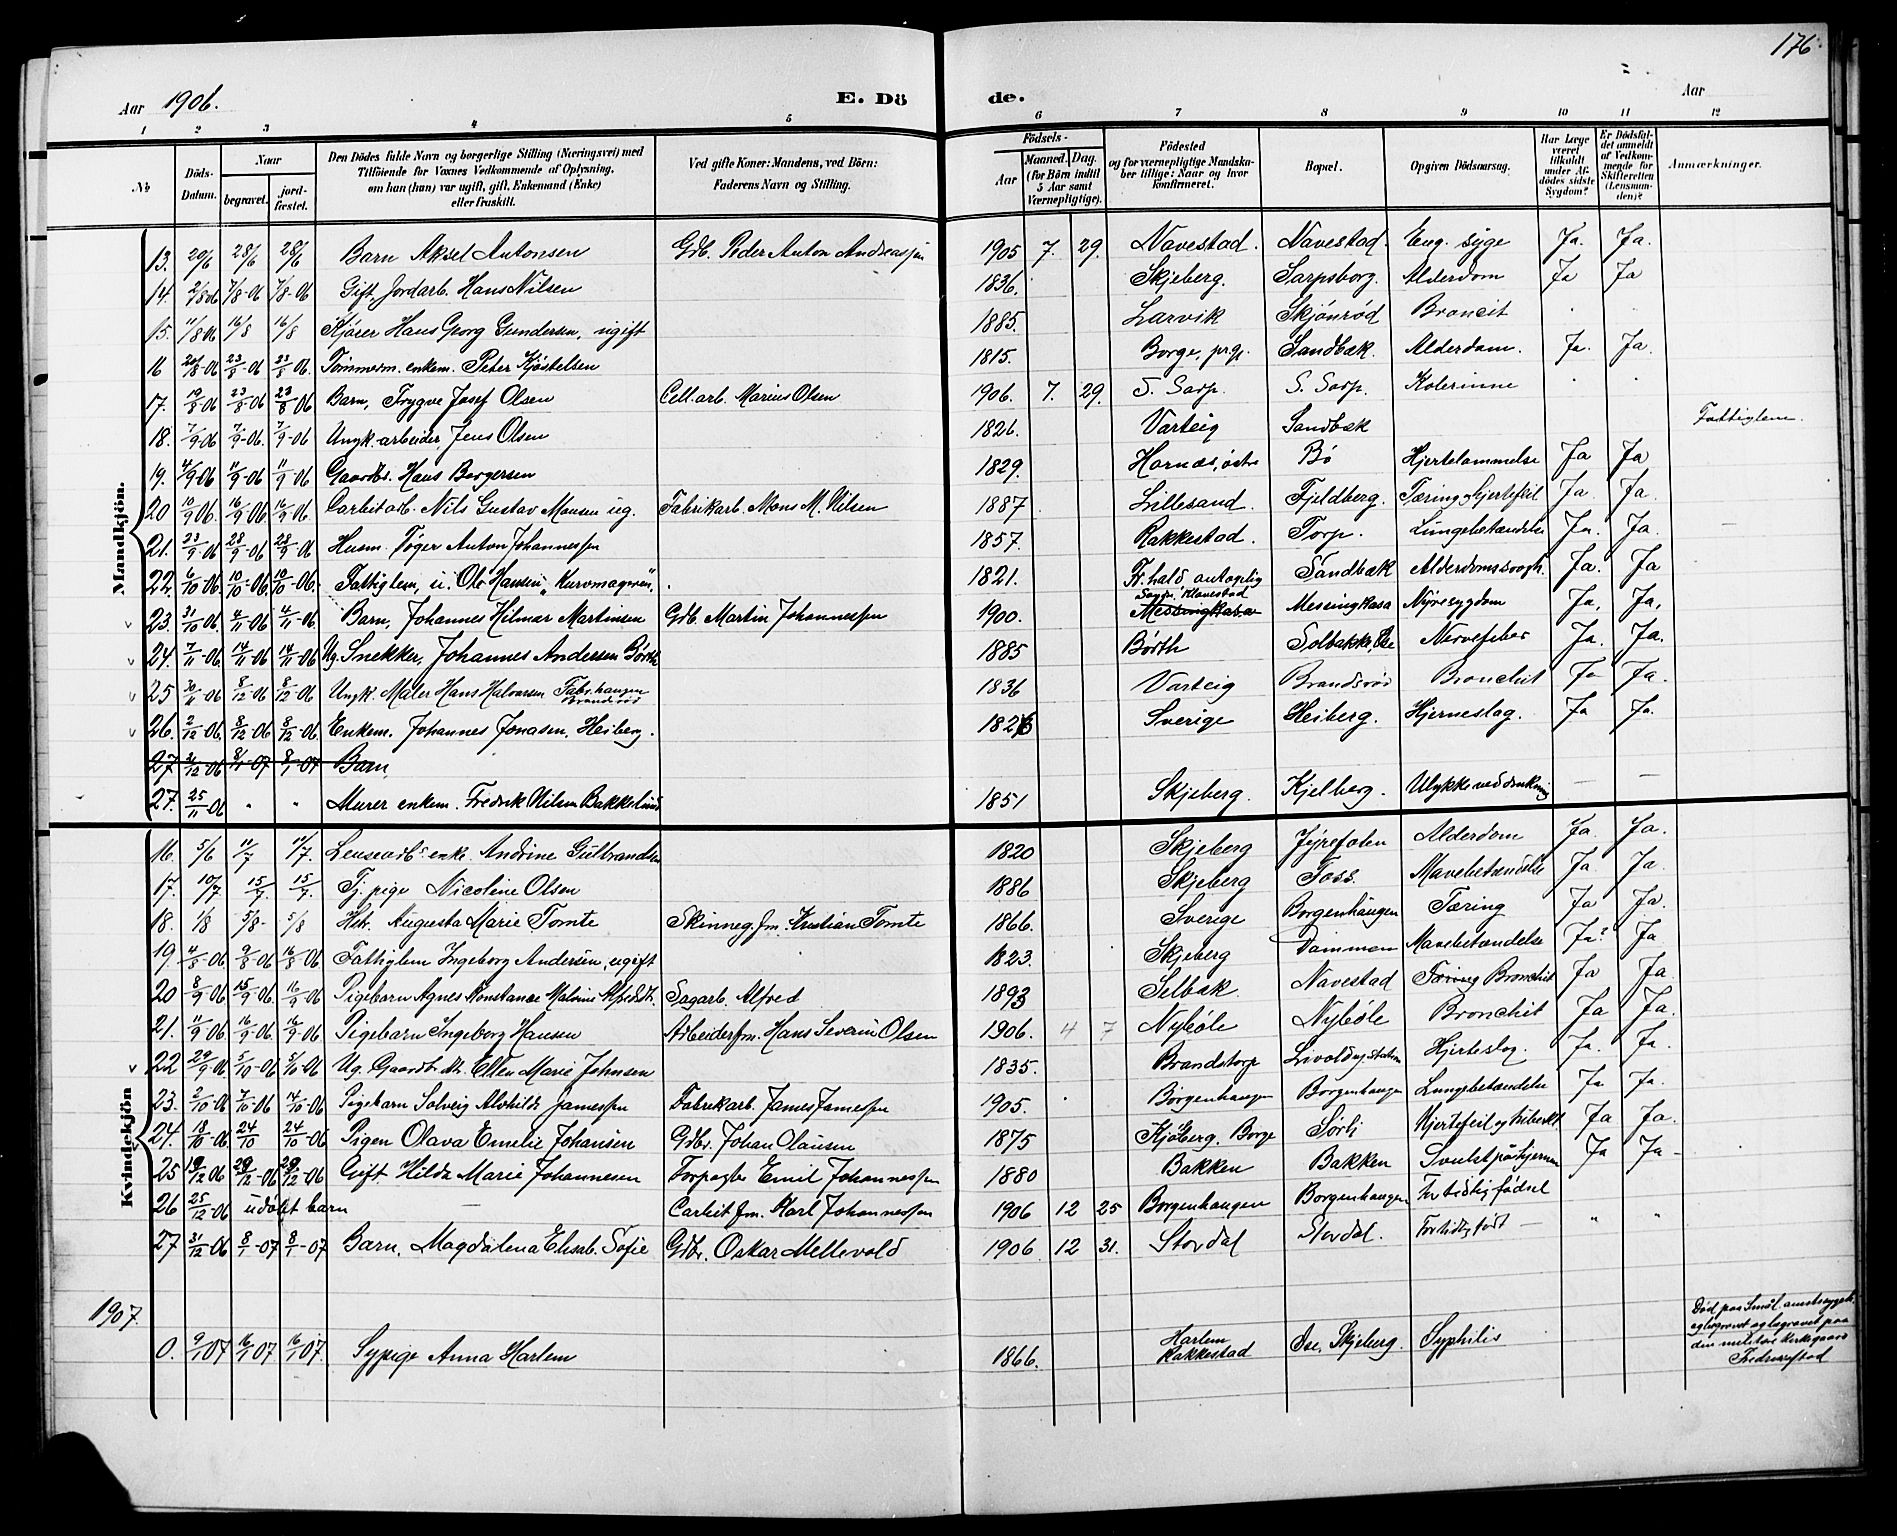 176
Aar 1906. E. Dö de. Aar
1 2 3 4 5 6 7 8 9 10 11 12
No Döds-Datum. Naar begravet. jord-fæstet. Den Dödes fulde Navn og borgerlige Stilling (Næringsvei) med Tilföiende for Voxnes Vedkommende af Oplysning, om han (hun) var ugift, gift, Enkemand (Enke) eller fraskilt. Ved gifte Koner: Mandens, ved Börn: Faderens Navn og Stilling. Födsels- Aar Maaned. Dag. (for Börn indtil 5 Aar samt Værnepligtige). Födested og for værnepligtige Mandskaber tillige: Naar og hvor konfirmeret. Bopæl. Opgiven Dödsaarsag. Har Læge været tilkaldt under Afdödes sidste Sygdom? Er Dödsfaldet anmeldt af Vedkommende for Skifteretten (Lensmanden)? Anmærkninger.
Mandkjön.
13. 20/6 28/6 28/6 Barn Aksel Antonsen Gdb. Peder Anton Andreassen 1905 7. 29. Navestad. Navestad. Eng. syge Ja. Ja.
14. 2/8 06 7/8-06 7/8-06 Gift, Jordarb. Hans Nilsen 1836. Skjeberg. Sarpsborg. Alderdom Ja Ja
15. 11/8 06 16/8 16/8 Kjører Hans Georg Gundersen, ugift 1885. Larvik Skjönröd Broncit
16 20/8-06 23/8-06 23/8 06. Tömmerm. enkem. Peter Kjöstelsen 1815. Borge, prgj. Sandbæk. Alderdom. Ja. Ja.
17. 19/8-06 23/8-06 23/8 06 Barn, Trygve Josef Olsen Cell.arb. Marius Olsen 1906. 7. 29. S. Sarp. S. Sarp. Kolerinne
18. 7/9 06 7/9-06. 7/9-06 Ungk.arbeider, Jens Olsen 1826. Varteig Sandbæk Fattiglem.
19. 4/9 06 11/9-06 11/9-06 Gaardbr. Hans Borgersen 1829. Hornæs, östre Bö Hjertelammelse Ja Ja
20 10/9 06. 16/9 06. 16/9 06. Carbitarb. Nils Gustav Monsen ug. Fabrikarb. Mons M. Nilsen 1887 Lillesand. Fjeldberg. Tæring, Hjertefeil Ja. Ja.
21. 23/9-06 28/9-06 28/9 06 Husm. Töger Anton Johannessen 1857. Rakkestad. Torp. Lungebetændelse Ja. Ja.
22. 6/10 06. 10/10-06. 10/10-06. Fattiglem, u. Ole Hansen "Kurvmageren". 1821. Fr.hald antagelig Sandbæk Alderdomssvagh. Ja. Ja
23. 31/10-06. 4/11-06 4/11-06. Barn, Johannes Hilmar Martinsen Gdb. Martin Johannessen 1900. Sogn, Klavestad Messingkasa Messingkasa Nyresygdom Ja. Ja.
24. 7/11-06 14/11-06 14/11-06 Ug. Snekker, Johannes Andersen Börth 1885 Börth Solbakke, Ise Nervefeber Ja. Ja.
25 30/11 06 8/12 06 8/12 06 Ungk. Maler Hans Halvorsen Fabr.haugen Brandsröd 1836 Varteig Brandsröd Bronchit Ja Ja.
26. 2/12 06 8/12 06 8/12-06 Enkem. Johannes Jonasen. Heiberg. 1826 Sverige Heiberg. Hjerneslag. Ja Ja.
27 31/12-06 8/1-07 8/1-07 Barn,
27. 25/11-06 " " Murer enkem. Fredrik Nilsen Bakkelund 1851 Skjeberg. Kjelberg. Ulykke ved drukning — —
Kvindekjön
16. 5/6 11/7 11/7. Lensearb's enke Andrine Gulbrandsen 1820 Skjeberg Alderdom Ja. Ja.
17. 10/7 15/7. 15/7. Tj.pige Nicoline Olsen 1886 Skjeberg Foss. Mavebetændelse Ja. Ja.
18. 1/8 5/8- 5/8 Hstr. Augusta Marie Tomte Skinneg.fm. Kristian Tomte 1866. Sverige Borgenhaugen Tæring Ja Ja.
19. 4/8-06 9/8-06 16/8-06 Fattiglem Ingeborg Andersen, ugift 1823. Skjeberg Dammen Mavebetændelse Ja? Ja
20 8/9-06 15/9-06. 16/9-06 Pigebarn Agnes Konstanse Malvine Alfredsdt. Sagarb. Alfred 1893 Selbak. Navestad Tæring Bronchit Ja Ja.
21. 11/9-06. 16/9-06. 16/9-06 Pigebarn Ingeborg Hansen Arbeiderfm. Hans Severin Olsen 1906. 4 7 Nyböle Nyböle Bronchit Ja Ja.
22 29/9-06 5/10-06 5/10-06 Ug. Gaardbr.dtr. Ellen Marie Johnsen 1835. Brandstorp Hjerteslag. Ja. Ja.
23. 2/10-06 7/10-06 14/10-06 Pigebarn Solveig Alvhilde Jamessen Fabrikarb. James Jamessen 1905. Borgenhaugen Borgenhaugen Lungebetændelse Ja Ja.
24. 18/10-06 24/10 24/10-06 Pigen Olava Emelie Johansen Gdbr. Johan Olausen 1875 Kjöberg. Borge Sörli Hjertefeil Ja Ja.
25 19/12 06 29/12-06 29/12-06 Gift Hilda Marie Johannesen Forpagter Emil Johannessen 1880 Bakken Bakken Svulst på hjernen Ja Ja-
26 25/12-06 udöbt barn — Carbit fm. Karl Johannessen 1906 12 25 Borgenhaugen Borgenhaugen For tidlig födsel
27 31/12-06 8/1-07 8/1-07 Barn, Magdalena Elisab. Sofie Gdbr. Oskar Mellevold 1906 12 31. Stordal Stordal. For tidlig födt — " "
1907.
0. 9/1 07 16/1 07 16/1 07. Sypige Anna Harlem 1866. Harlem Rakkestad Ise, Skjeberg. Syphilis Död paa Smål. amtssygeh. og begravet paa den militære kirkegaard Fredriksstad